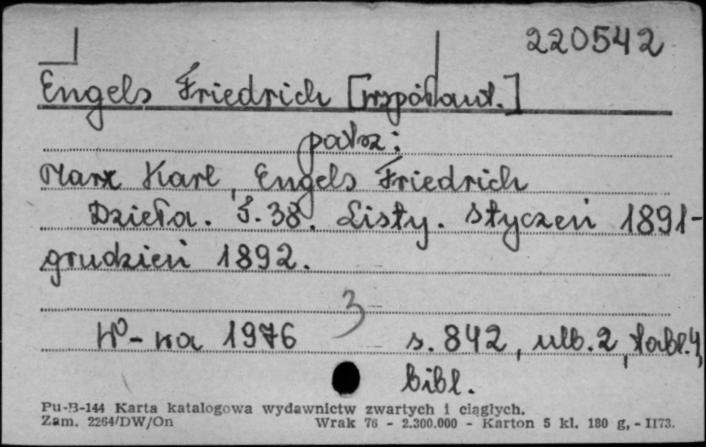 220542
Engels Friedrich [współaut.]
patrz:
Marx Karl, Engels Friedrich
Dzieła. T.38. Listy. Styczeń 1891-
grudzień 1892.
3
W-wa 1976 s. 842, nlb. 2, tabl. 4,
bibl.
Pu-B-144 Karta katalogowa wydawnictw zwartych i ciągłych.
Zam. 2264/DW/On Wrak 76 - 2.300.000 - Karton 5 kl. 180 g, - II73.